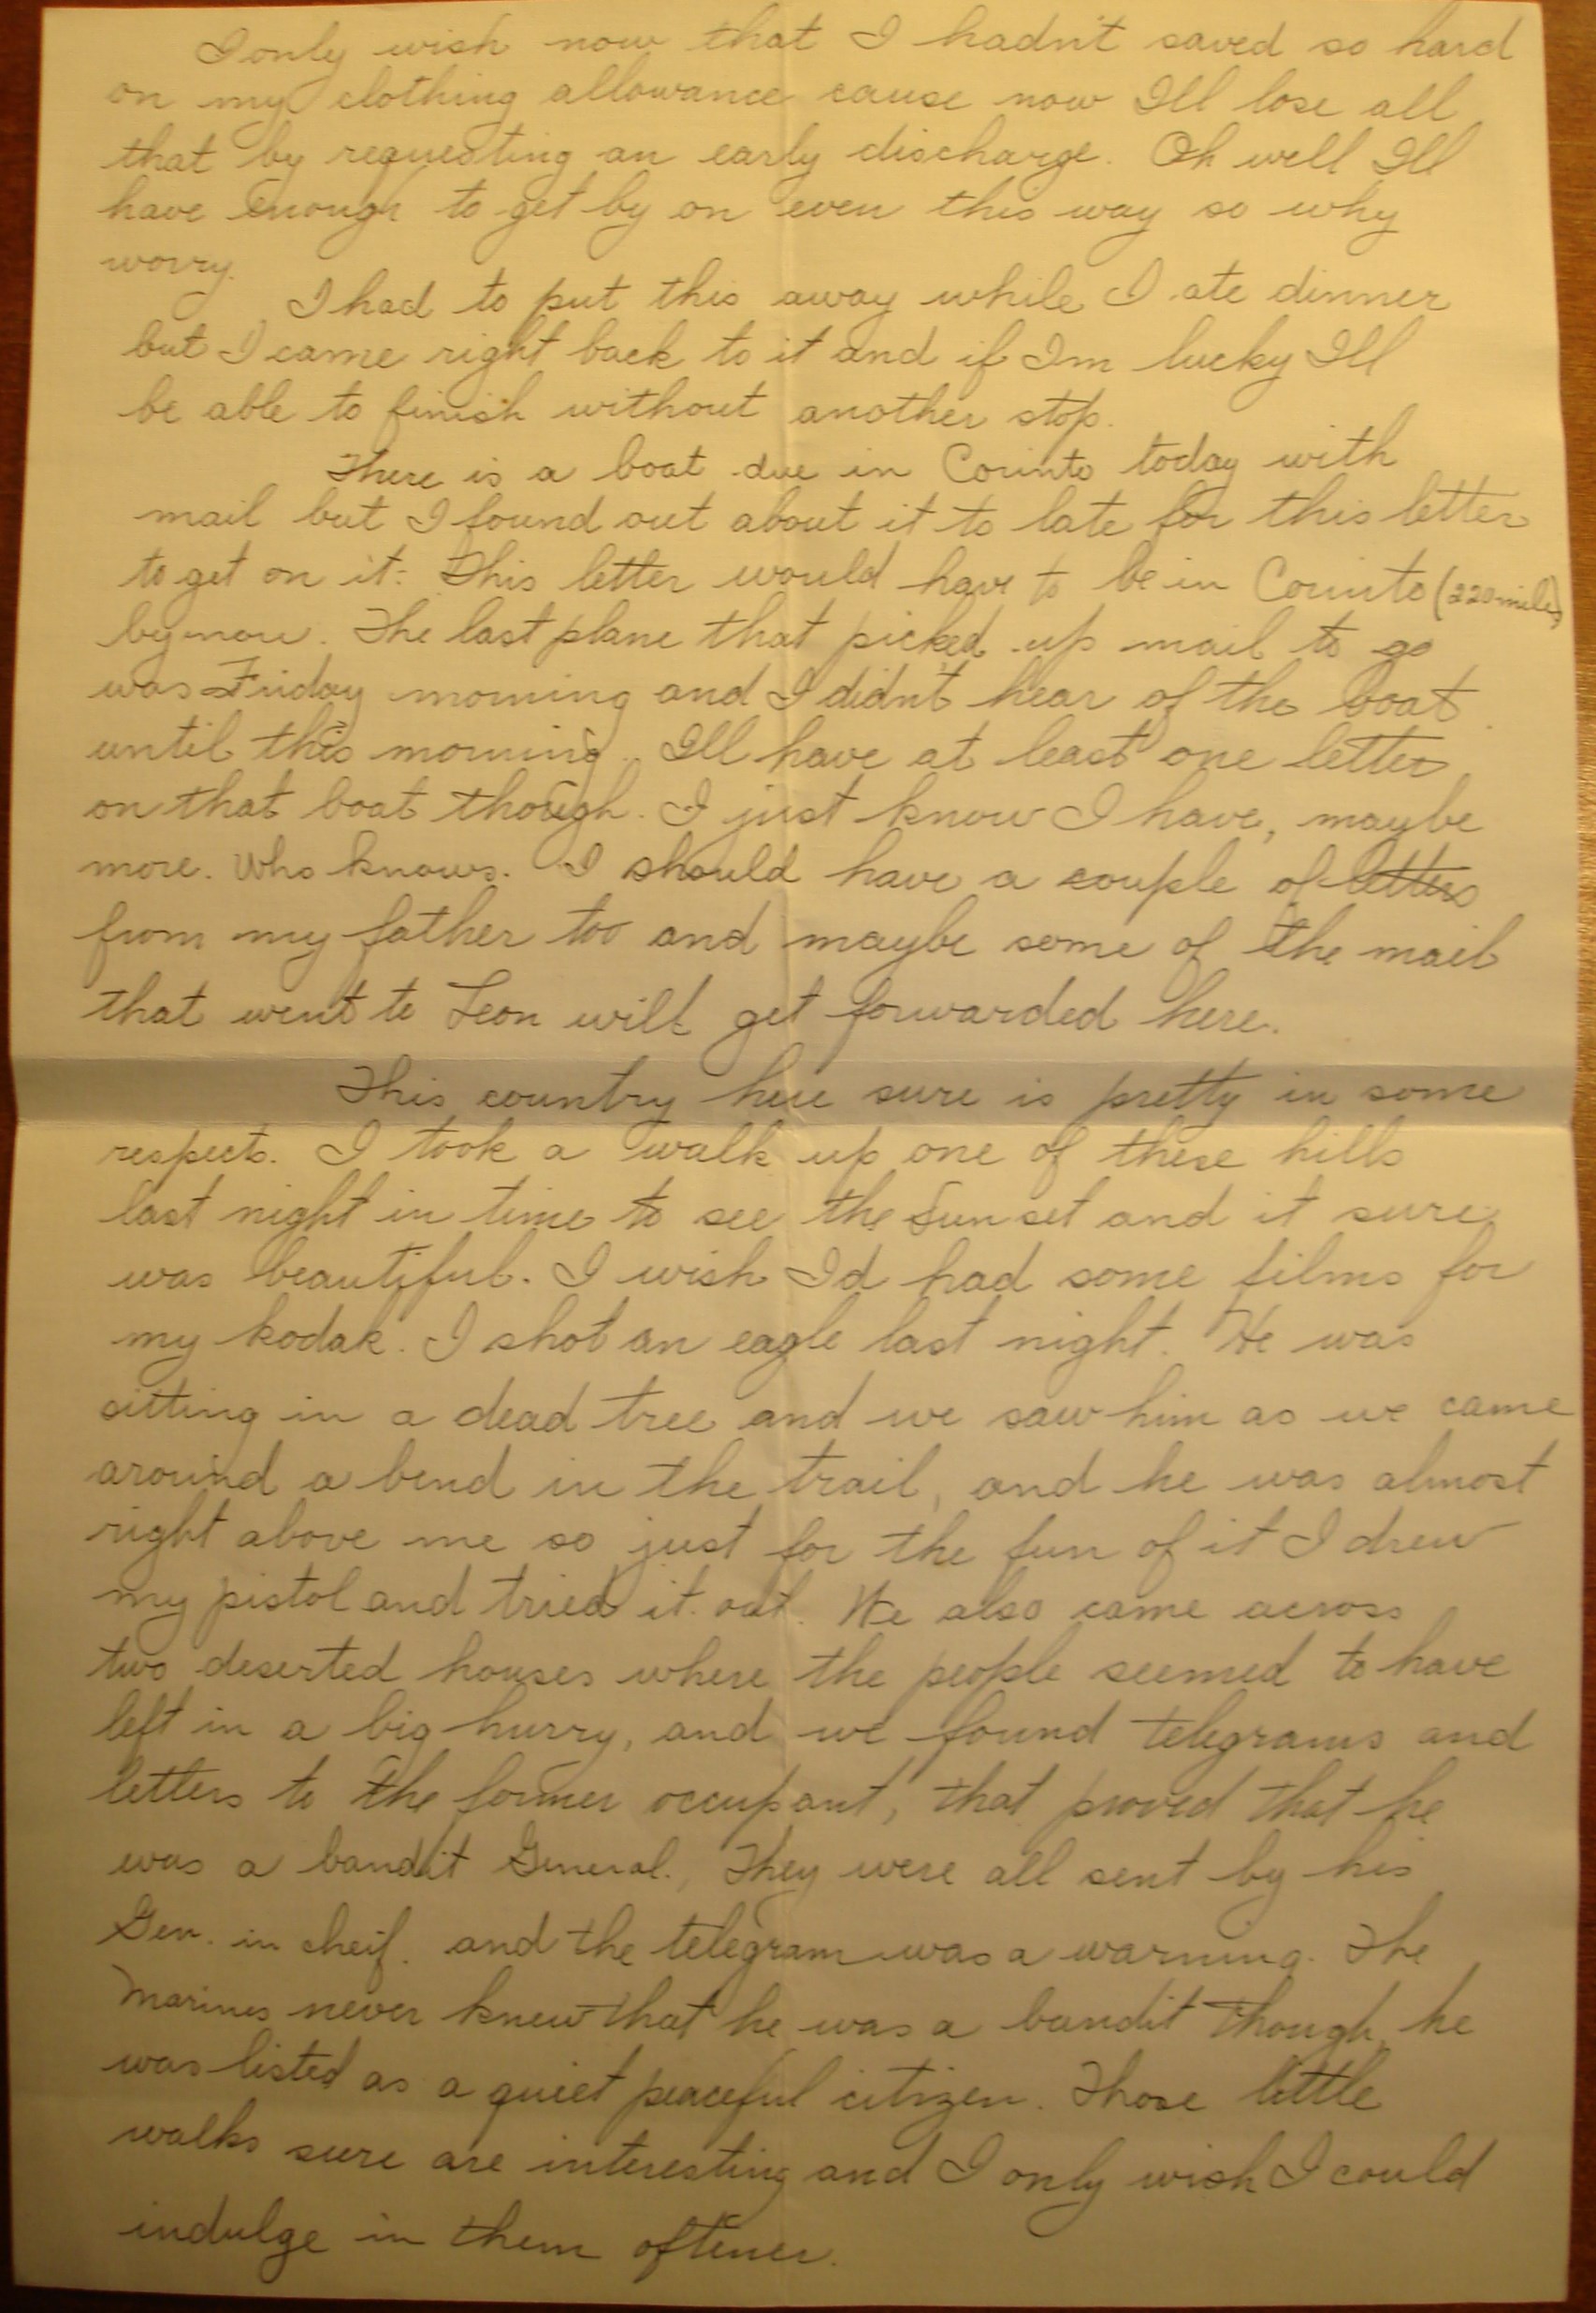 I only wish now that I hadn't saved so hard
on my clothing allowance cause now Ill lose all
that by requesting an early discharge. Oh well Ill
have enough to get by on even this way so why
worry.
I had to put this away while I ate dinner
but I came right back to it and if Im lucky Ill
be able to finish without another stop.
There is a boat due in Corinto today with
mail but I found out about it to late for this letter
to get on it. This letter would have to be in Corinto (220 miles)
by now. The last plane that picked up mail to go
was Friday morning and I didn't hear of the boat
until this morning. Ill have at least one letter
on that boat though. I just know I have, maybe
more. Who knows. I should have a couple of letters
from my father too and maybe some of the mail
that went to Leon will get forwarded here.
This country here sure is pretty in some
respects. I took a walk up one of these hills
last night in time to see the sunset and it sure
was beautiful. I wish Id had some films for
my kodak. I shot an eagle last night. He was
sitting in a dead tree and we saw him as we came
around a bend in the trail, and he was almost
right above me so just for the fun of it I drew
my pistol and tried it out. We also came across
two deserted houses where the people seemed to have
left in a big hurry, and we found telegrams and
letters to the former occupant, that proved that he
was a bandit General. They were all sent by his
Gen. in cheif. and the telegram was a warning. The
Marines never knew that he was a bandit though, he
was listed as a quiet peaceful citizen. Those little
walks sure are interesting and I only wish I could
indulge in them oftener.